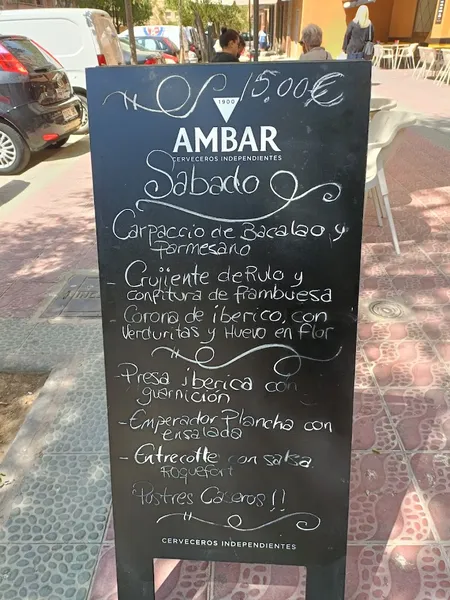 15.00€
1900
AMBAR
CERVECEROS INDEPENDIENTES
Sabado
Carpaccio de Bacalao y
Parmesano
- Crujiente de Rulo y
confitura de frambuesa
- Corona de iberico, con
Verduritas y Huevo en flor
- Presa iberica con
guarnicion
- Emperador Plancha con
ensalada
- Entrecotte con salsa
Roquefort
Postres Caseros !!
CERVECEROS INDEPENDIENTES